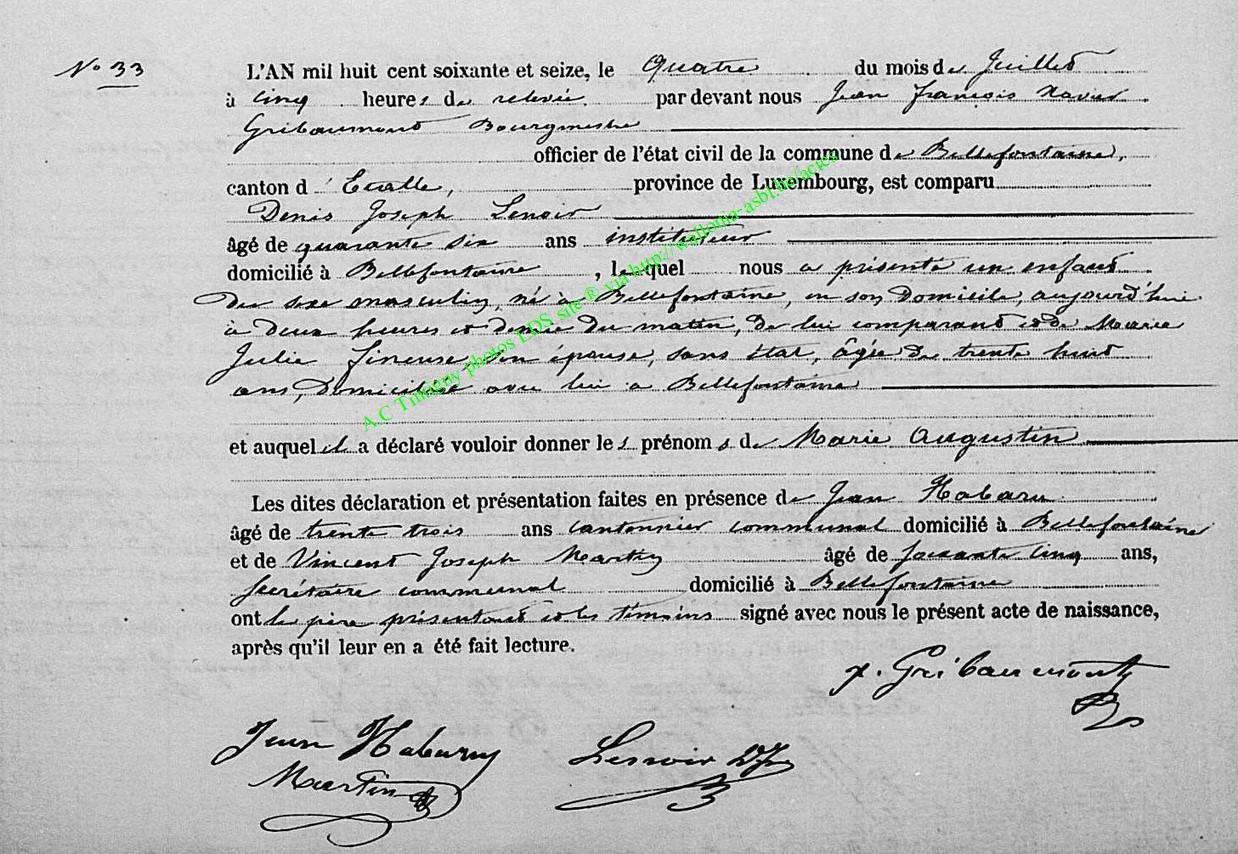 No 33
L'AN mil huit cent soixante et seize, le Quatre du mois de Juillet
à cinq heures de relevée par devant nous Jean François Xavier
Gribaumont Bourgmestre
officier de l'état civil de la commune de Bellefontaine,
canton d'Etalle, province de Luxembourg, est comparu
Denis Joseph Lenoir
âgé de quarante six ans instituteur
domicilié à Bellefontaine, lequel nous a présenté un enfant
du sexe masculin, né à Bellefontaine, en son domicile, aujourd'hui
à deux heures et demie du matin, de lui comparant et de Marie
Julie son épouse, sans état, âgée de trente huit
ans, domiciliée avec lui à Bellefontaine
et auquel il a déclaré vouloir donner les prénoms de Marie Augustin
Les dites déclaration et présentation faites en présence de Jean Habaru
âgé de trente trois ans cantonnier communal domicilié à Bellefontaine
et de Vincent Joseph Martin âgé de soixante cinq ans,
secrétaire communal domicilié à Bellefontaine
ont le père présentant et les témoins signé avec nous le présent acte de naissance,
après qu'il leur en a été fait lecture.
x. Gribaumont
Jean Habaru Lenoir DJ
Martin
A.C Tintigny photos EDS site ® via http://wallonia-asbl.be/actes